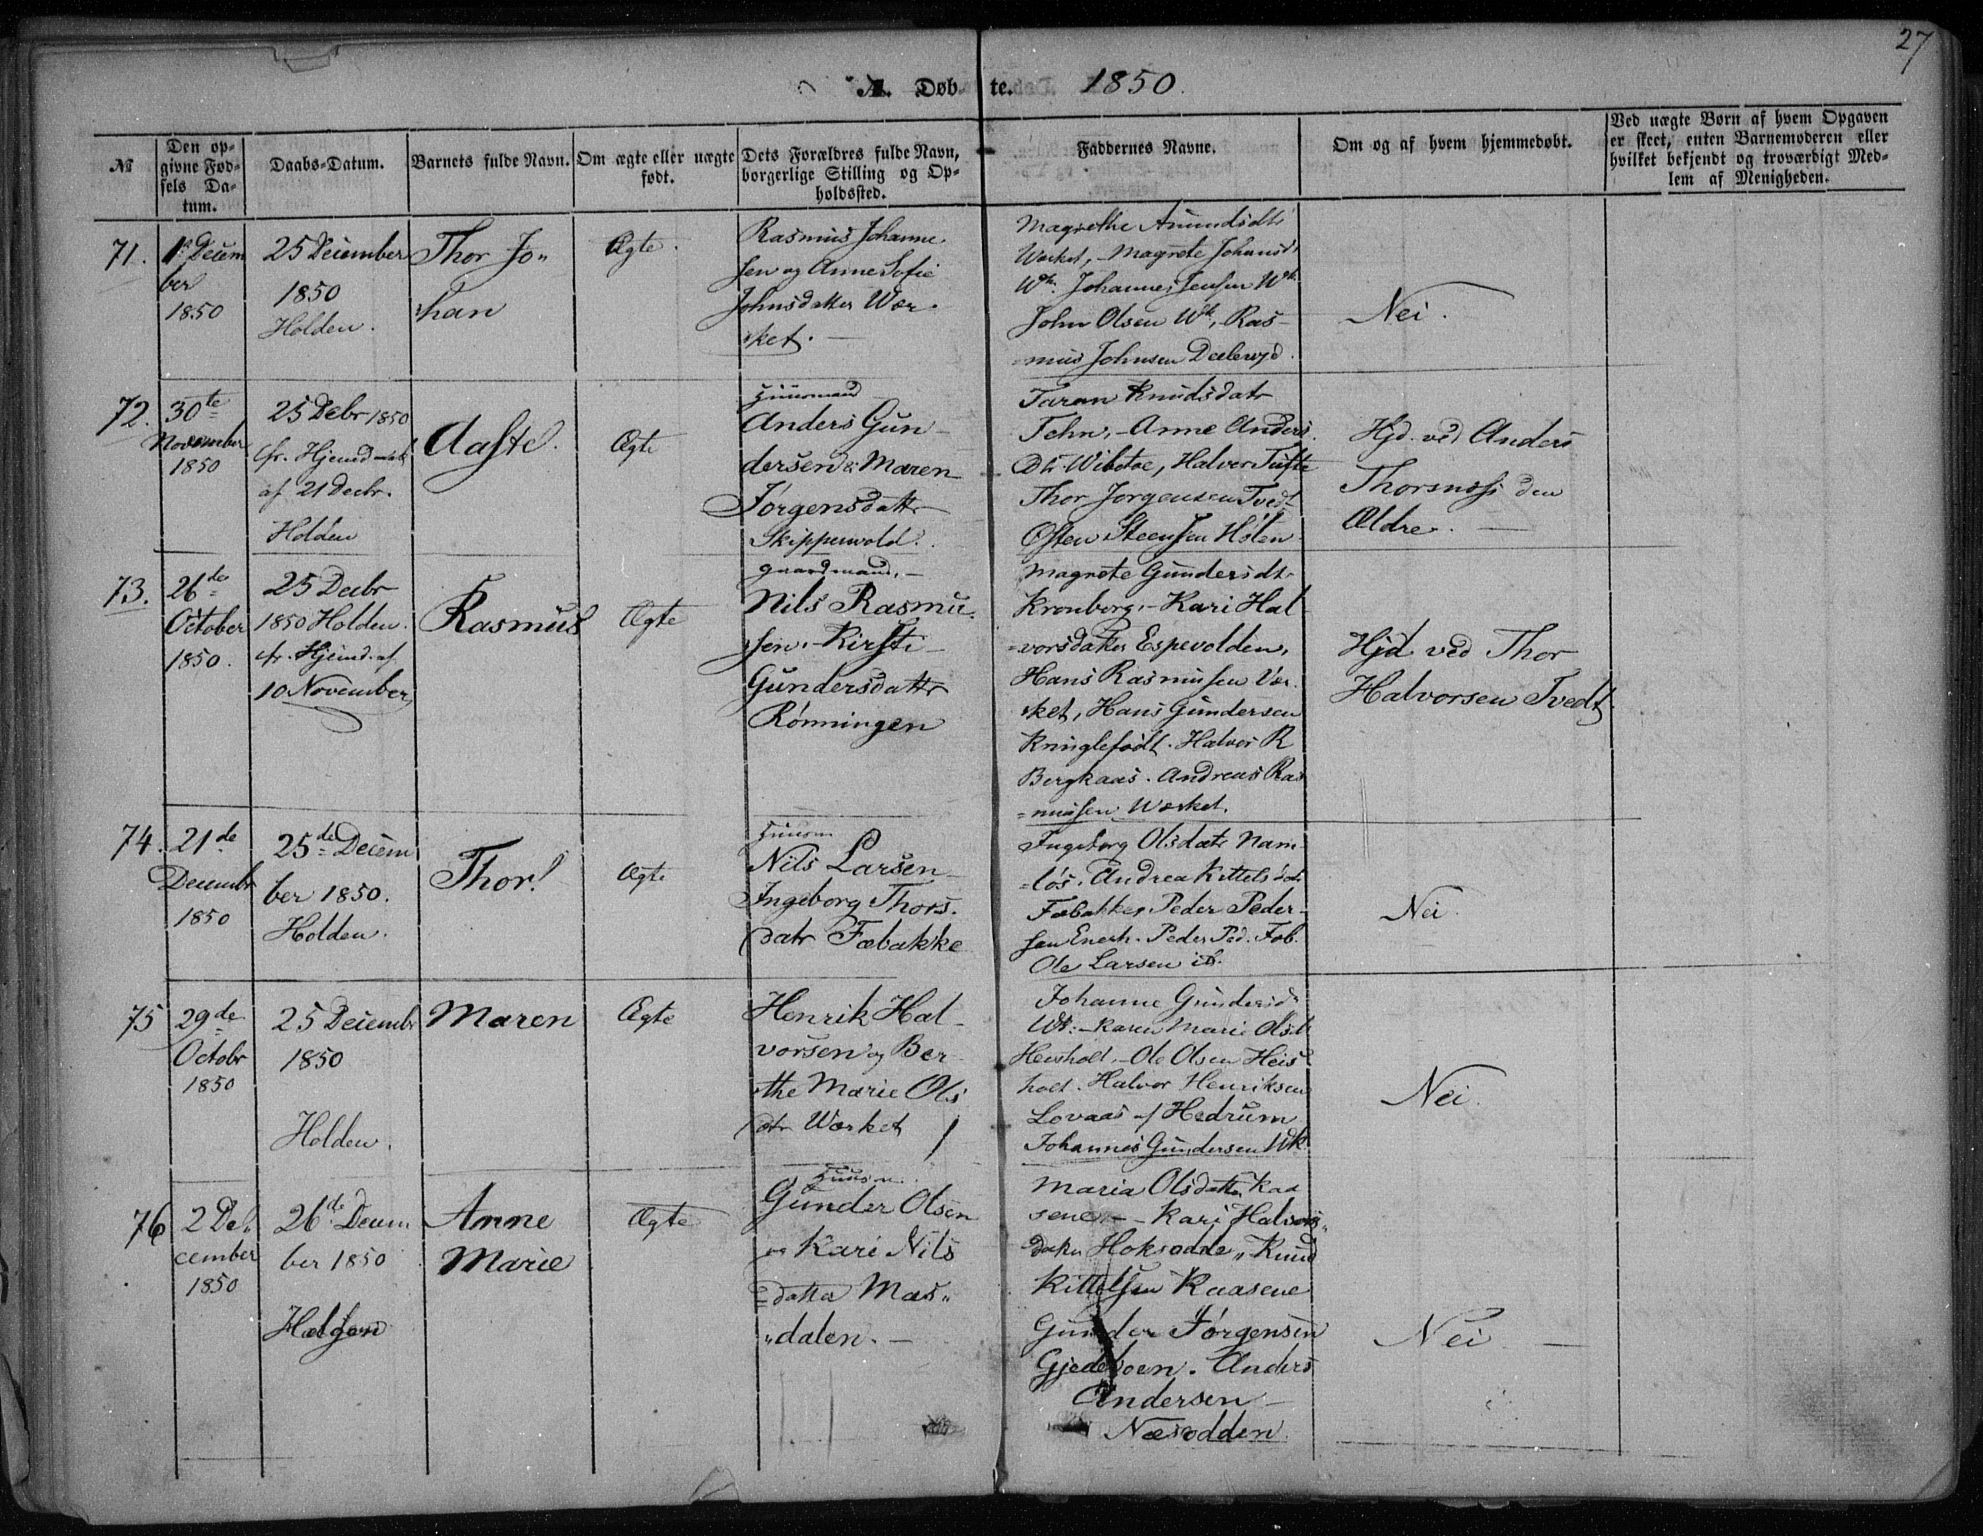 27
A. Døbte. 1850.
№
Den opgivne Fødsels Datum.
Daabs-Datum.
Barnets fulde Navn.
Om ægte eller uægte født.
Dets Forældres fulde Navn, borgerlige Stilling og Opholdssted.
Faddernes Navne.
Om og af hvem hjemmedøbt.
Ved uægte Børn af hvem Opgaven er skeet, enten Barnemoderen eller hvilket bekjendt og troværdigt Medlem af Menigheden.
71.
Decem
ber
1850
25 December
1850
Holden.
Thor Jo„
han
Ægte.
Rasmus Johanne
sen og Anne Sofie
Johnsdatter Vær
ket.
Magrethe Amundsdtr
Værket, Magrete Johansd
Wk. Johannes Jensen Wk
John Olsen Wk, Ras
mus Johnsen
Nei.
72.
30te
November
1850
25 Debr 1850
cfr. Hjemd
af 21 Decbr.
Holden
Aaste.
Ægte
Huusmand
Anders Gun
dersen & Maren
Jørgensdattr
Skippervold.
Taran Knudsdatr
Tehn, Anne Anders
Dtr Wibetoe, Halvor Tufte
Thor Jørgensen Tvedt
Osten Steensen Holen
Hjd. ved Anders
Thorsnæss den
Ældre.
73.
26de
October
1850.
25 Decbr
1850 Holden.
cfr. Hjemd. af
10 November
Rasmus
Ægte
Gaardmand,
Nils Rasmu
sen, Kirsti
Gundersdattr
Rønningen
Magnete Gundersdtr
Kronborg, Kari Hal
vorsdatter Espevolden,
Hans Rasmussen Vær
ket, Hans Gundersen
Kringlefødt. Halvor R
Bergkaas. Andreas Ras
mussen Værket.
Hjd. ved Thor
Halvorsen Tvedt
74.
21de
Decembr
1850
25de Decem
ber 1850.
Holden.
Thor.
Ægte
Huusm
Nils Larsen
Ingeborg Thors.
datr Fæbakke
Ingeborg Olsdatr Nam
løs. Andrea Kittelsd
Fæbakke, Peder Peder
sen Enerh. Peder Ped. Fæb.
Ole Larsen ib.
Nei.
75
29de
Octobr
1850
25 Decembr
1850
Holden.
Maren
Ægte
Henrik Hal
vorsen og Ber
the Marie Ols
dtr Værket
Johanne Gundersd
Wk. Karen Marie Olsd
Heisholt, Ole Olsen Heis
holt. Halvor Henriksen
Lovaas af Hedrum
Johannes Gundersen Wk.
Nei.
76
2 De„
cember
1850
26de Decem
ber 1850
Helgen
Anne
Marie
Ægte
Huusm.
Gunder Olsen
og Kari Nils
datter Mas„
„dalen.
Maria Olsdatter Kaa
sene, Kari Halvors„
datter Hoksodde„ Knud
Kittelsen Kaasene
Gunder Jørgensen
Gjedeboen. Anders
Andersen
Næsodden.
Nei